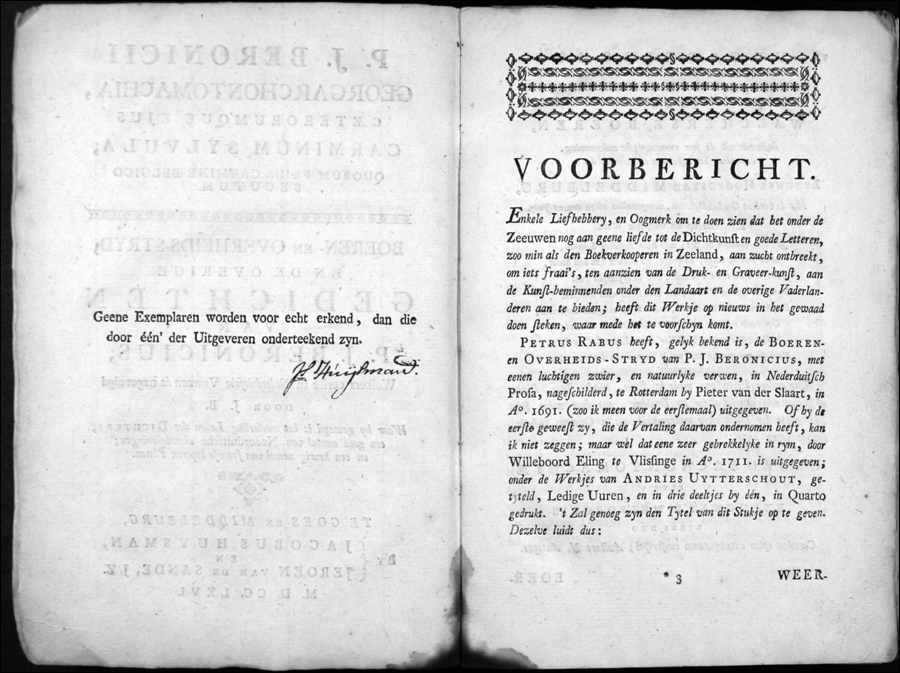 Geene Exemplaren worden voor echt erkend, dan die
door één' der Uitgeveren onderteekend zyn.
Js Huijsman.
VOORBERICHT.
Enkele Liefhebbery, en Oogmerk om te doen zien dat het onder de
Zeeuwen nog aan geene liefde tot de Dichtkunſt en goede Letteren,
zoo min als den Boekverkooperen in Zeeland, aan zucht ontbreekt,
om iets fraai's, ten aanzien van de Druk- en Graveer-kunſt, aan
de Kunſt-beminnenden onder den Landaart en de overige Vaderlan-
deren aan te bieden; heeft dit Werkje op nieuws in het gewaad
doen ſteken, waar mede het te voorſchyn komt.
PETRUS RABUS heeft, gelyk bekend is, de BOEREN-
EN OVERHEIDS-STRYD van P. J. BERONICIUS, met
eenen luchtigen zwier, en natuurlyke verwen, in Nederduitſch
Proſa, nageſchilderd, te Rotterdam by Pieter van der Slaart, in
Aº. 1691. (zoo ik meen voor de eerſtemaal) uitgegeven. Of by de
eerſte geweeſt zy, die de Vertaling daarvan ondernomen heeft, kan
ik niet zeggen; maar wèl dat eene zeer gebrekkelyke in rym, door
Willeboord Eling te Vlisſinge in Aº. 1711. is uitgegeven;
onder de Werkjes van ANDRIES UYTTERSCHOUT, ge-
tyteld, Ledige Uuren, en in drie deeltjes by één, in Quarto
gedrukt. 't Zal genoeg zyn den Tytel van dit Stukje op te geven.
Dezelve luidt dus:
* 3 WEER-